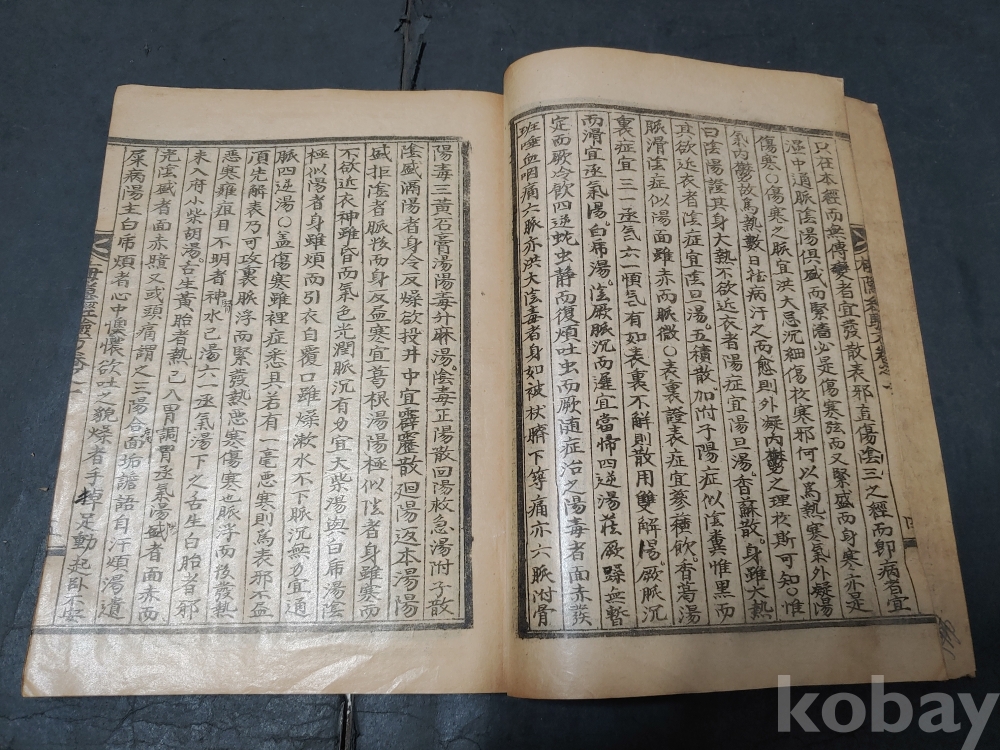 只在本經而無傳變者宜發散表邪直傷陰三之經而郎病者宜
溫中通脈陰陽俱盛而緊濇必是傷寒弦而又緊盛而身寒亦是
傷寒○傷寒之脈宜洪大忌沉細傷於寒邪何以爲熱寒氣外凝陽
氣內鬱故爲熱數日祛病汗之而愈則外凝內鬱之理於斯可知○惟
曰陰陽證其身大熱不欲近衣者陽症宜陽旦湯香蘇散身雖大熱
其欲近衣者陰症宜陰旦湯五積散加附子陽症似陰糞惟黑而
脈滑陰症似陽面雖赤而脈微○表裏證表症宜蔘種飮香葛湯
裏症宜三一丞气六一順气有如表裏不解則散用雙解湯厥脈沉
而滑宜丞氣湯白虎湯陰厥脈沉而遲宜當帰四逆湯
定而厥冷飮四逆蚘虫靜而復煩吐虫而厥随症治之陽毒者面赤發
班唾血咽痛六脈亦洪大陰毒者身如被杖臍下築痛亦六脈附骨
陽毒三黃石膏湯陽毒升麻湯陰毒正陽散回陽救急湯附子散
陰盛滿陽者身冷反燥欲投井中宜霹靂散廻陽返本湯陽
盛拒陰者脈後而身反惡寒宜葛根湯陽極似陰者身雖寒而
不欲近衣神雖昏而氣色光潤脈沉有力宜大柴湯與白虎湯陰
極似陽者身雖煩而引衣自覆口雖燥漱水不下脈沉無力宜通
脈四逆湯○盖傷寒雖裡症悉具若有一毫悪寒則爲表邪不盡
須先解表乃可攻裏脈浮而緊發熱悪寒傷寒也脈浮而後發熱
悪寒癰疽目不明者神水已湯六一丞氣湯下之舌生白胎者邪
未入府小柴胡湯舌生黃胎者熱已入胃調胃丞氣湯陽盛者面赤而
光陰盛者面赤黯又或頭痛謂之三陽合面垢譫語自汗煩湯遺
屎病陽主白虎煩者心中懊憹欲吐之貌燥者手掉足動起卧不安
kobay